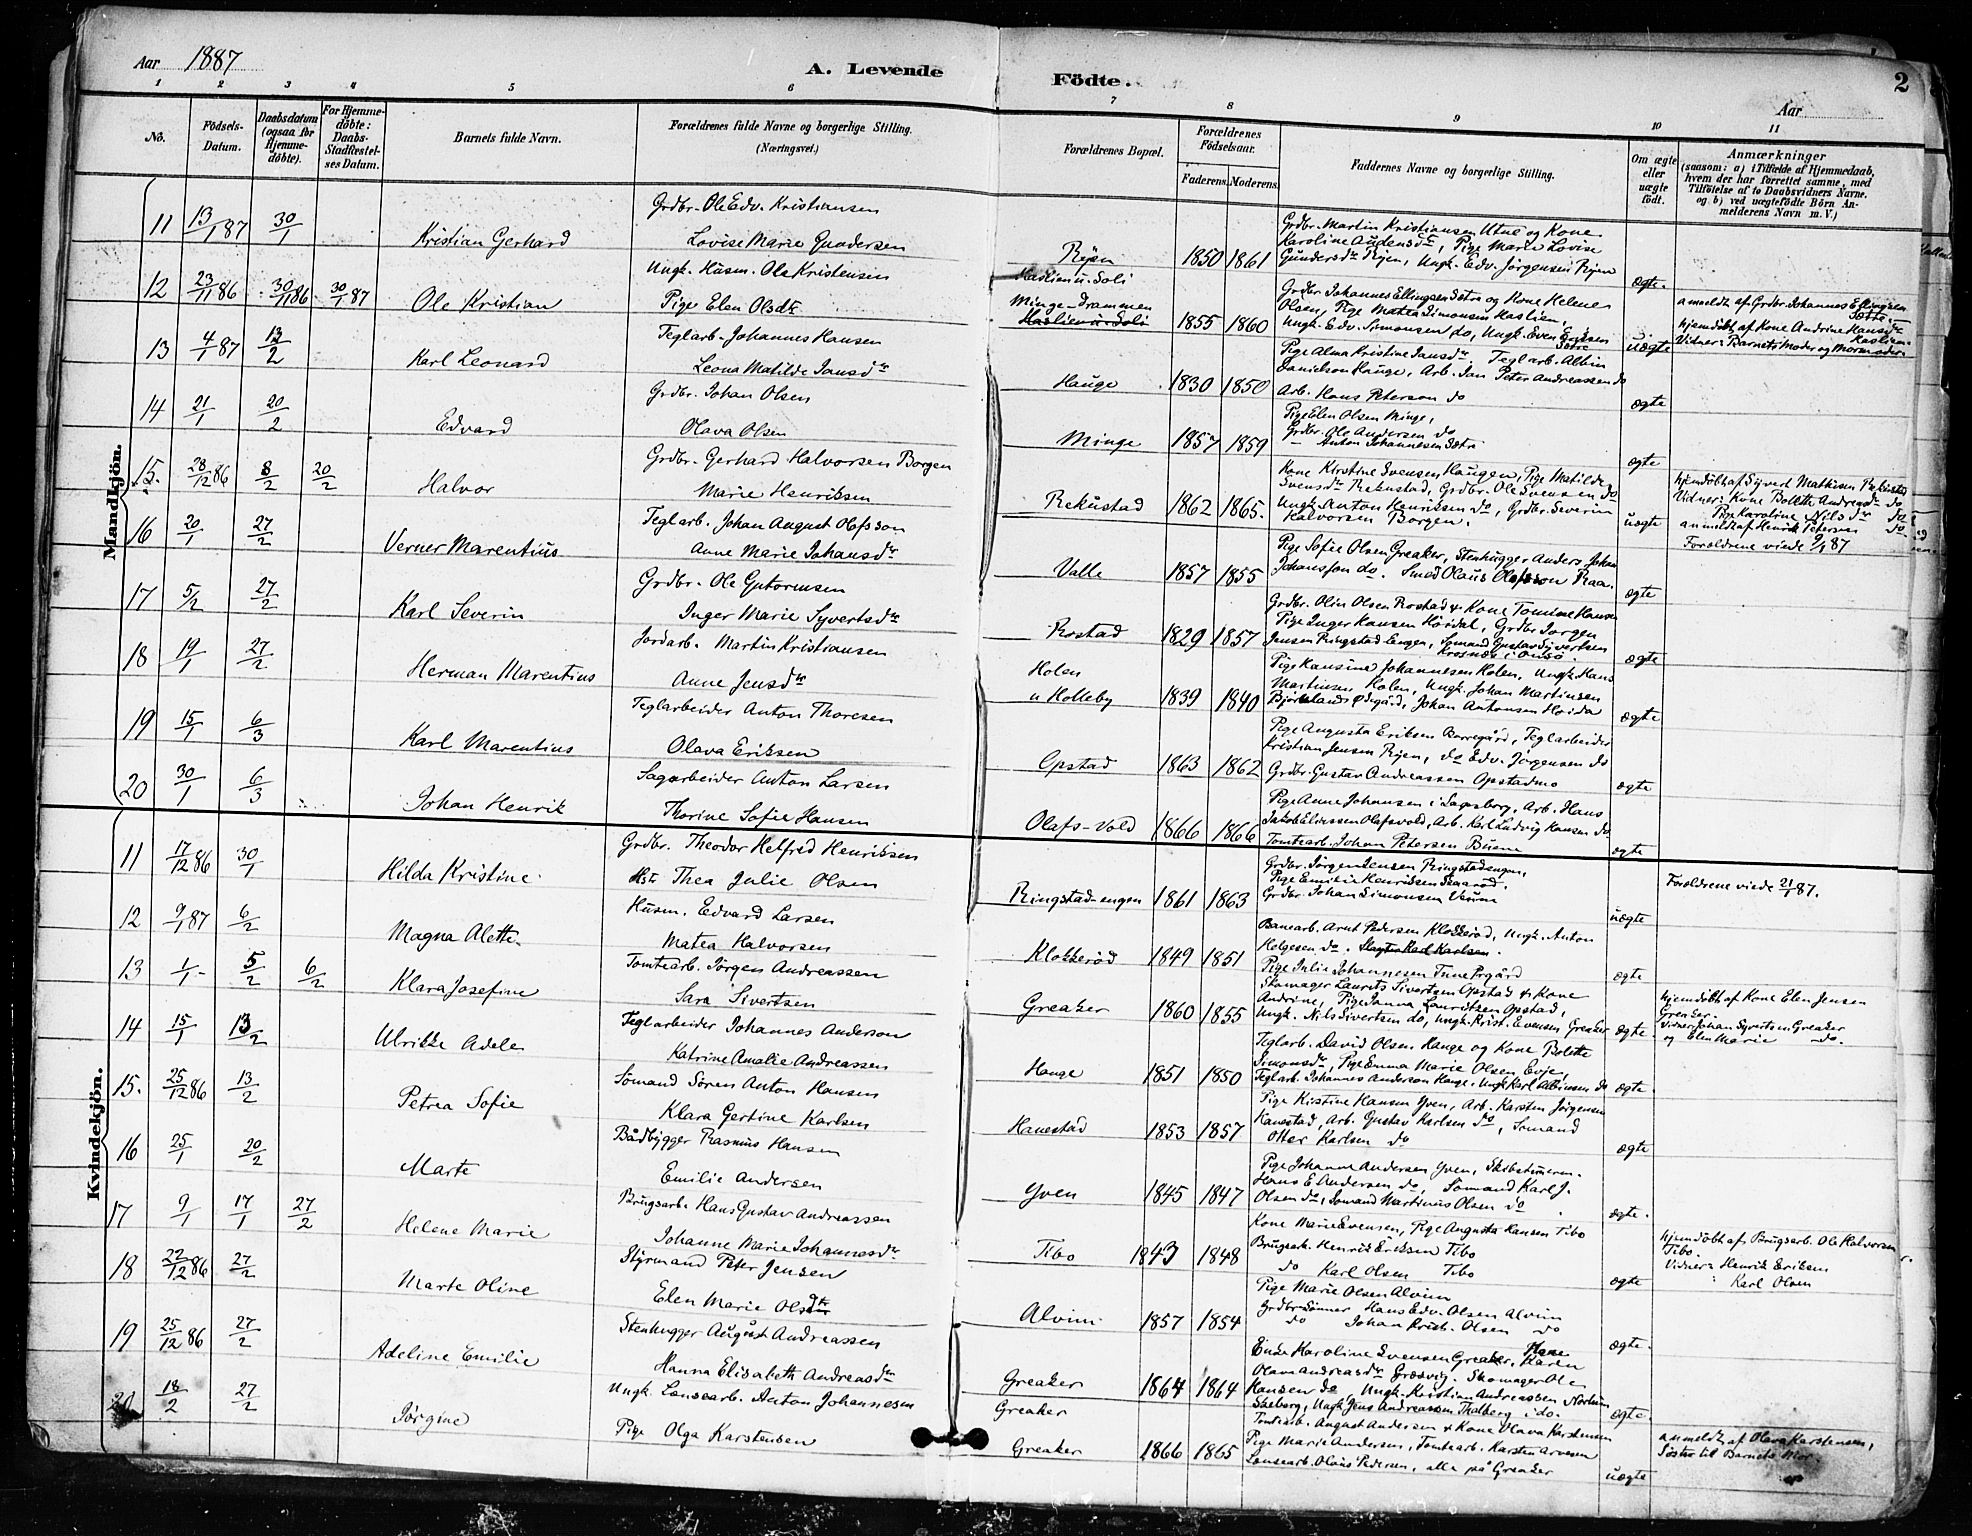 Aar 1887
A. Levende Födte.
2
Aar
1 2 3 4 5 6 7 8 9 10 11
No.
Födsels-Datum.
Daabsdatum (ogsaa for Hjemme-döbte).
For Hjemme-döbte: Daabs-Stadfæstel-ses Datum.
Barnets fulde Navn.
Forældrenes fulde Navne og borgerlige Stilling. (Næringsvei.)
Forældrenes Bopæl.
Forældrenes Födselsaar.
Faderens. Moderens.
Faddernes Navne og borgerlige Stilling.
Om ægte eller uægte födt.
Anmærkninger (saasom: a) i Tilfælde af Hjemmedaab, hvem der har forrettet samme, med Tilföielse af to Daabsvidners Navne, og b) ved uægtefödte Börn An-melderens Navn m. V.)
Mandkjön.
11 13/1 87 30/1 Kristian Gerhard
Grdbr. Ole Edv. Kristiansen
Lovise Marie Gundersen
Røjen 1850 1861
Grdbr. Martin Kristiansen Utne og Kone
Karoline Audensdtr, Pige Marie Lovise
Gundersdtr Røjen, Ungk. Edv. Jørgensen Røjen
ægte.
12 23/11 86 30/11 86 30/1 87 Ole Kristian
Ungk. Husm. Ole Kristensen
Pige Elen Olsdtr
Haslien u. Soli
Minge-Drammen
Haslien u. Soli 1855 1860
Grdbr Johannes Ellingsen Sotre og Kone Helene
Olsen, Pige Matea Simonsen Haslien,
Ungk. Edv. Simonsen do, Ungk. Even Eriksen Sotre
uægte
anmeldt af Grdbr Johannes Ellingsen Sotre.
hjemdøbt af Kone Andrine Hansdtr Haslien.
Vidner: Barnets Moder og Mormoder
13 4/1 87 13/2 Karl Leonard
Teglarb. Johannes Hansen
Leona Matilde Jansdtr
Hauge 1830 1850
Pige Alma Kristine Jansdtr. Teglarb. Albin
Danielson Hauge, Arb. Jan Peter Andreassen do
Arb. Hans Peterson do
ægte
14 21/1 20/2 Edvard
Grdbr. Johan Olsen
Olava Olsen
Minge 1857 1859
Pige Elen Olsen Minge,
Grdbr. Ole Andersen do
— Anton Johannesen Sotre
ægte
15. 28/12 86 8/2 20/2 Halvor
Grdbr. Gerhard Halvorsen Borgen
Marie Henriksen
Rekustad 1862 1865.
Kone Kirstine Svensen Haugen, Pige Matilde
Svensdtr Rekustad, Grdbr. Ole Svensen do
Ungk. Anton Henriksen do, Grdbr. Severin
Halvorsen Borgen.
uægte
hjemdøbt af Syverd Mathisen Rekustad
Vidner: Kone Bolette Andreasdtr do
Pige Karoline Nilsdtr do
anmeldt af Henrik Petersen do.
Forældrene viede 9/1 87
16 20/1 27/2 Verner Marentius
Teglarb. Johan August Olofsson
Anne Marie Johansdtr
Valle 1857 1855
Pige Sofie Olsen Greaker, Stenhugger Anders Johan
Johansson do. Smed Olaus Olofsson Raa.
ægte
17 5/2 27/2 Karl Severin
Grdbr. Ole Gutormsen
Inger Marie Syvertsdtr
Rostad 1829 1857
Grdbr. Olin Olsen Rostad & Kone Tomine Hansen
Pige Inger Hansen Høidal, Grdbr Jørgen
Jensen Ringstad Engen, Sømand Gustav Syvertsen
Krosnes i Onsø.
ægte
18 19/1 27/2 Herman Marentius
Jordarb. Martin Kristiansen
Anne Jensdtr
Holen
u Holleby 1839 1840
Pige Hansine Johannesen Holen, Ungk. Hans
Martinsen Holen, Ungk. Johan Martinsen
Bjørnlands Ødegård, Johan Antonsen Hoida
ægte
19 15/1 6/3 Karl Marentius
Teglarbeider Anton Thoresen
Olava Eriksen
Opstad 1863 1862
Pige Augusta Eriksen Borregård, Teglarbeider
Kristian Jensen Røjen, do Edv. Jørgensen do
Grdbr. Gustav Andreassen Opstadmo
ægte
20 30/1 6/3 Johan Henrik
Sagarbeider Anton Larsen
Thorine Sofie Hansen
Olafs-Vold 1866 1866
Pige Anne Johansen i Sarpsborg, Arb. Hans
Jakob Eliassen Olafsvold, Arb. Karl Ludvig Hansen do
Tomtearb. Johan Petersen Buene
ægte
Kvindekjön.
11 17/12 86 30/1 Hilda Kristine
Grdbr. Theodor Helfred Henriksen
Hstr Thea Julie Olsen
Ringstad-engen 1861 1863
Grdbr. Jørgen Jensen Ringstadengen,
Pige Emilie Henriksen Skaarød,
Grdbr. Johan Simonsen Veum
uægte
Forældrene viede 21/1 87.
12 9/1 87 6/2 Magna Alette
Husm. Edvard Larsen
Matea Halvorsen
Klokkerød 1849 1851
Banearb. Arnt Pedersen Klokkerød, Ungk. Anton
Holgesen do. Slagter Karl Karlsen.
Pige Julie Johannesen Tune Prgård
ægte
13 1/1 5/2 6/2 Klara Josefine
Tomtearb. Jørgen Andreassen
Sara Sivertsen
Greaker 1860 1855
Skomager Laurets Sivertsen Opstad & Kone
Andrine, Pige Janna Lauritzen Opstad,
Ungk. Nils Sivertsen do, Ungk. Krist. Evensen Greaker
ægte.
hjemdøbt af Kone Elen Jensen
Greaker.
Vidner Johan Syvertsen Greaker
og Elen Marie do.
14 15/1 13/2 Ulrikke Adele
Teglarbeider Johannes Anderson
Katrine Amalie Andreassen
Hauge 1851 1850
Teglarb. David Olsen Hauge og Kone Bolette
Simonsdtr, Pige Emma Marie Olsen Evje,
Teglarb. Johannes Anderson Hauge, Ungk Karl Albinsen do
ægte
15. 25/12 86 13/2 Petrea Sofie
Sömand Sören Anton Hansen
Klara Gertine Karlsen
Hanestad 1853 1857
Pige Kirstine Hansen Yven, Arb. Karsten Jørgensen
Hanestad, Arb. Gustav Karlsen do, Sømand
Otter Karlsen do
ægte
16 25/1 20/2 Marte
Bådbygger Rasmus Hansen
Emilie Andersen
Yven 1845 1847
Pige Johanne Andersen Yven, Skibstømrer.
Hans E Andersen do, Sömand Karl J.
Olsen do, Sömand Martinus Olsen do
ægte.
17 9/1 17/1 27/2 Helene Marie
Brugsarb. Hans Gustav Andreassen
Johanne Marie Johannesdtr
Tibo 1843 1848
Kone Marie Evensen, Pige Augusta Hansen Tibo
Brugsarb. Henrik Eriksen Tibo
do Karl Olsen Tibo
ægte
hjemdøbt af Brugsarb. Ole Halvorsen
Tibo.
Vidner: Henrik Eriksen
" Karl Olsen
18 22/12 86 27/2 Marte Oline
Styrmand Peter Jensen
Elen Marie Olsdtr
Alvim 1857 1854
Pige Marie Olsen Alvim
Grdbr Sønner Hans Edv. Olsen Alvim
do Johan Krist. Olsen do
ægte.
19 25/12 86 27/2 Adeline Emilie
Stenhugger August Andreassen
Hanna Elisabeth Andreasdtr
Greaker 1864 1864
Enke Karoline Svensen Greaker, Kone Karen
Olava Andreasdtr Græsvig. Skomager Ole
Hansen do, Ungk. Kristian Andreassen Norlum
Skeberg, Ungk Jens Andreassen Thalberg i do.
ægte.
20 18/2 27/2 Jørgine
Ungk. Lonsearb. Anton Johannesen
Pige Olga Karstensen
Greaker
Greaker 1866 1865
Tomtearb. August Andersen & Kone Olava Karstensen
Pige Marie Andersen, Tomtearb. Karsten Arvesen
Lonsearb. Olaus Pedersen, alle på Greaker
uægte
anmeldt af Olava Karstensen,
Søster til Barnets Mor.